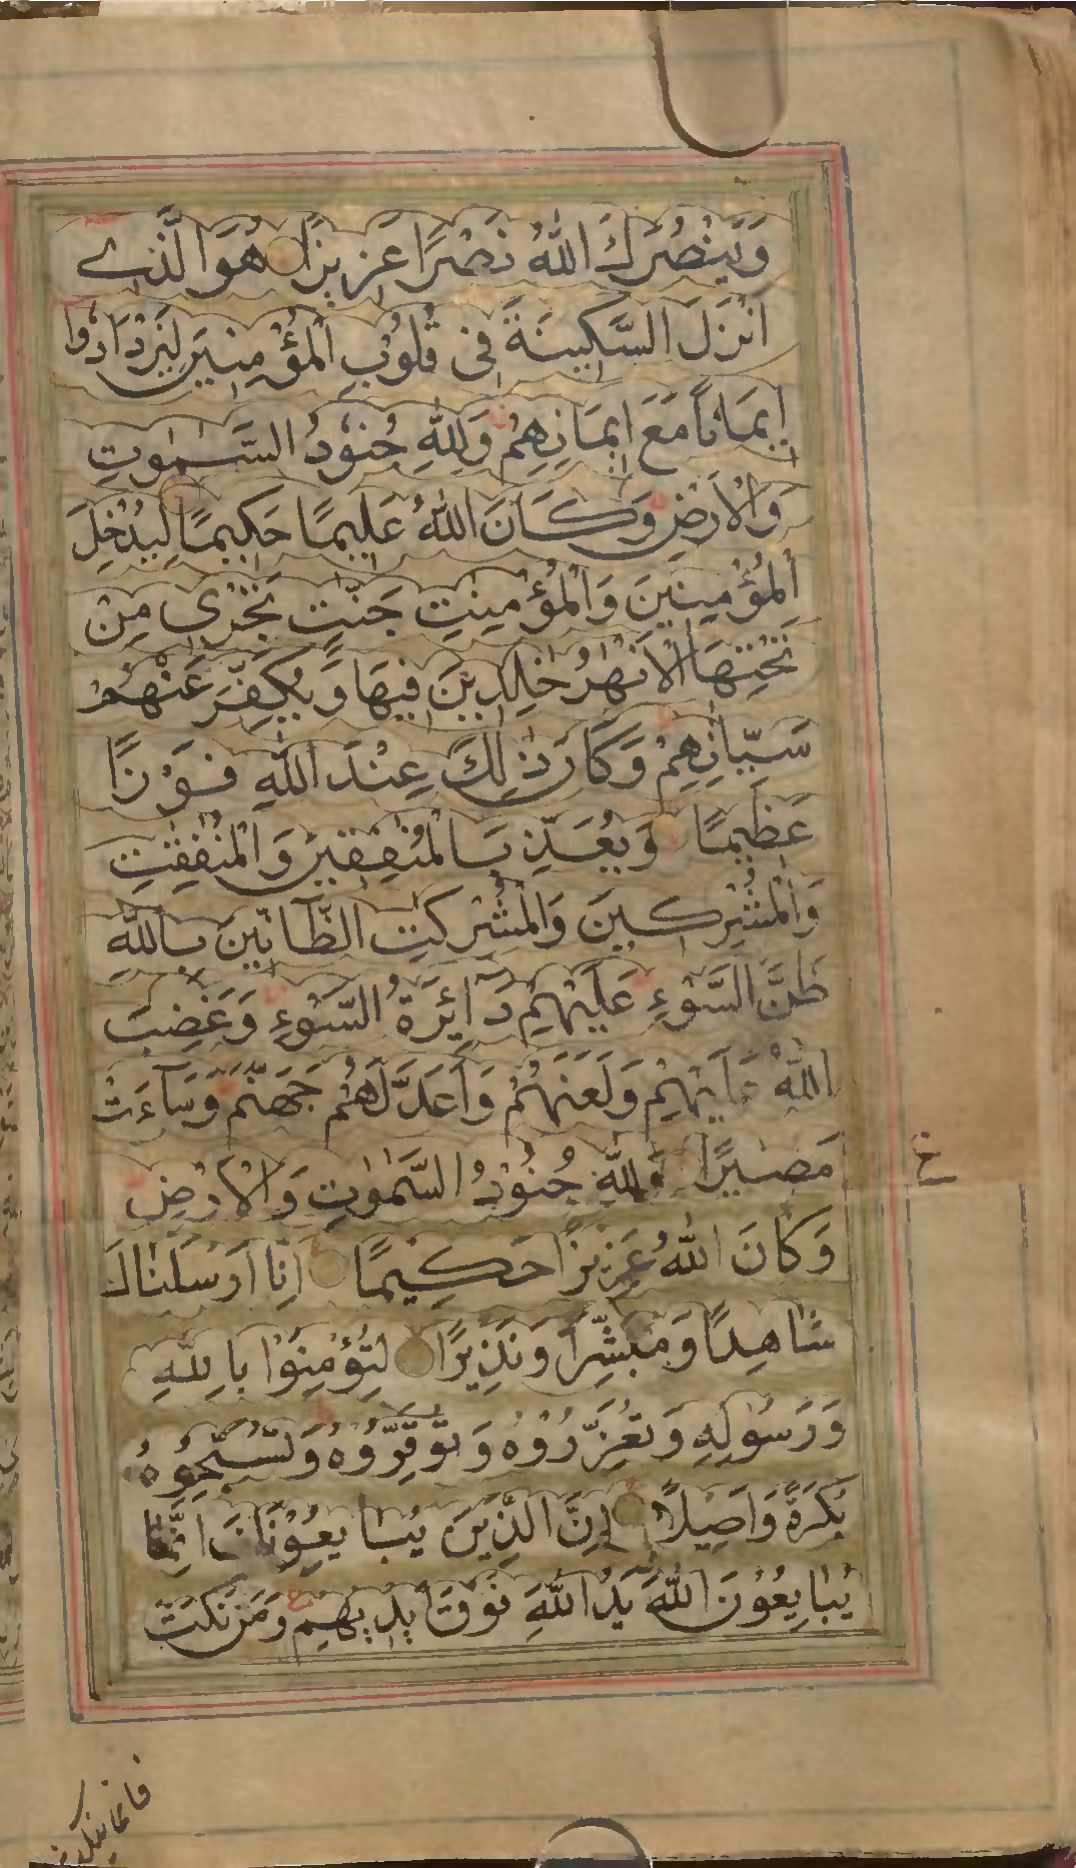 وَّيَنْصُرَكَ اللّٰهُ نَصْرًا عَزِيزًا هُوَ الَّذِے
اَنْزَلَ السَّكِينَةَ فِى قُلُوْبِ الْمُؤْمِنِينَ لِيَزْدَادُوْا
اِيمَانًا مَعَ اِيمَانِهِمْ وَلِلّٰهِ جُنُوْدُ السَّمٰوٰتِ
وَالْاَرْضِ وَكَانَ اللّٰهُ عَلِيمًا حَكِيمًا لِيُدْخِلَ
الْمُؤْمِنِينَ وَالْمُؤْمِنٰتِ جَنّٰتٍ تَجْرِى مِنْ
تَحْتِهَا الْاَنْهٰرُ خٰلِدِينَ فِيهَا وَيُكَفِّرَ عَنْهُمْ
سَيِّاٰتِهِمْ وَكَانَ ذٰلِكَ عِنْدَ اللّٰهِ فَوْزًا
عَظِيمًا وَيُعَذِّبَ الْمُنٰفِقِينَ وَالْمُنٰفِقٰتِ
وَالْمُشْرِكِينَ وَالْمُشْرِكٰتِ الظَّآنِّينَ بِاللّٰهِ
ظَنَّ السَّوْءِ عَلَيْهِمْ دَآئِرَةُ السَّوْءِ وَغَضِبَ
اللّٰهُ عَلَيْهِمْ وَلَعَنَهُمْ وَاَعَدَّ لَهُمْ جَهَنَّمَ وَسَآءَتْ
مَصِيرًا وَلِلّٰهِ جُنُوْدُ السَّمٰوٰتِ وَالْاَرْضِ
وَكَانَ اللّٰهُ عَزِيزًا حَكِيمًا اِنَّا اَرْسَلْنَاكَ
شَاهِدًا وَمُبَشِّرًا وَنَذِيرًا لِتُؤْمِنُوْا بِاللّٰهِ
وَرَسُوْلِهِ وَتُعَزِّرُوْهُ وَتُوَقِّرُوْهُ وَتُسَبِّحُوْهُ
بُكْرَةً وَاَصِيْلًا اِنَّ الَّذِينَ يُبَايِعُوْنَكَ اِنَّمَا
يُبَايِعُوْنَ اللّٰهَ يَدُ اللّٰهِ فَوْقَ اَيْدِيهِمْ وَمَنْ نَكَثَ